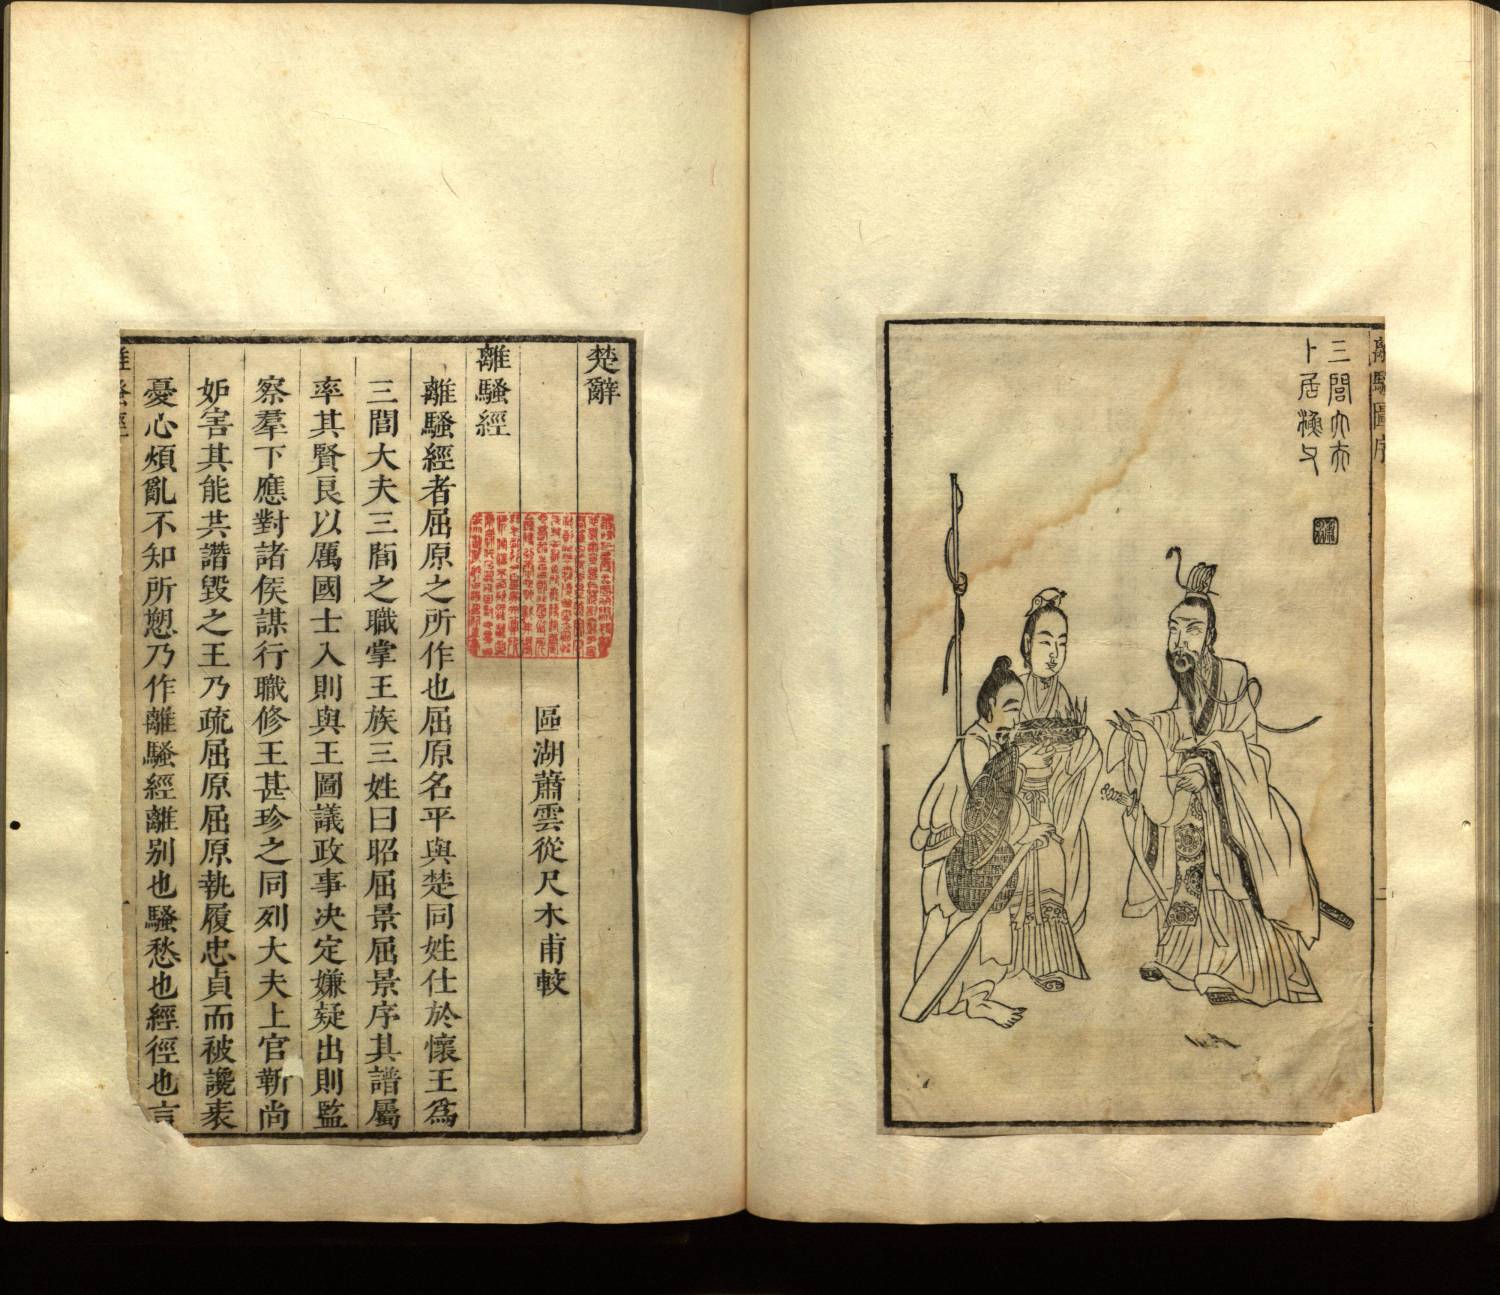 離騷圖序
三閭大夫
卜居漁父
二
楚辭
區湖蕭雲從尺木甫較
離騷經
離騷經者屈原之所作也屈原名平與楚同姓仕於懷王為
三閭大夫三閭之職掌王族三姓曰昭屈景屈景序其譜屬
率其賢良以厲國士入則與王圖議政事决定嫌疑出則監
察羣下應對諸侯謀行職修王甚珍之同列大夫上官靳尚
妒害其能共譖毀之王乃疏屈原屈原執履忠貞而被讒衺
憂心煩亂不知所愬乃作離騷經離别也騷愁也經徑也言
離騷經
一